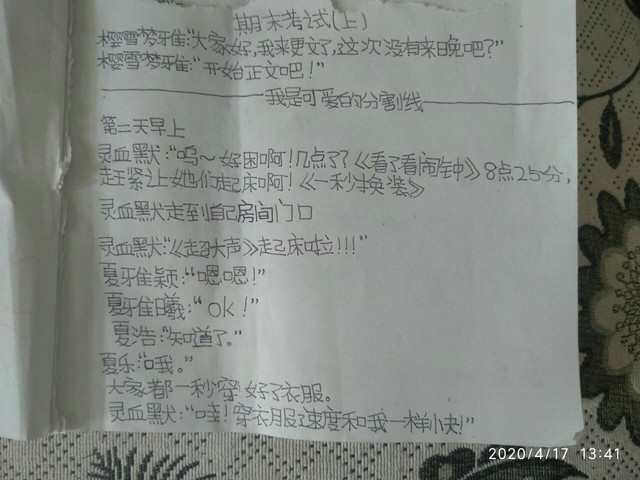 期末考试(上)
樱雪梦雅:“大家好,我来更文了,这次没有来晚吧?”
樱雪梦雅:“开始正文吧!”
我是可爱的分割线
第二天早上
灵血默:“呜~好困啊!几点了?《看了看闹钟》8点25分,
赶紧让她们起床啊!《一秒换装》
灵血默走到自己房间门口
灵血默:“《超大声》起床啦!!!”
夏雅颖:“嗯嗯!”
夏雅曦:“OK!”
夏浩:“知道了。”
夏乐:“哦。”
大家都一秒穿好了衣服。
灵血默:“哇!穿衣服速度和我一样快!”
2020/4/17 13:41